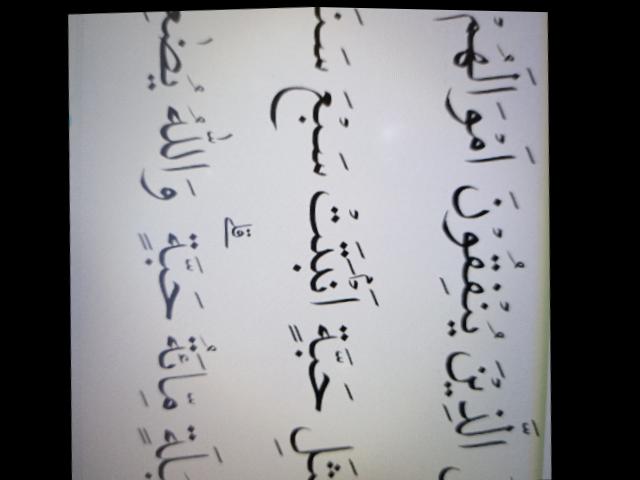 الَّذِيْنَ يُنْفِقُوْنَ اَمْوَالَهُمْ
ثَلِ حَبَّةٍ اَنْۢبَتَتْ سَبْعَ سَنَ
لَةٍ مِّائَةُ حَبَّةٍ ۗ وَاللّٰهُ يُضٰعِ